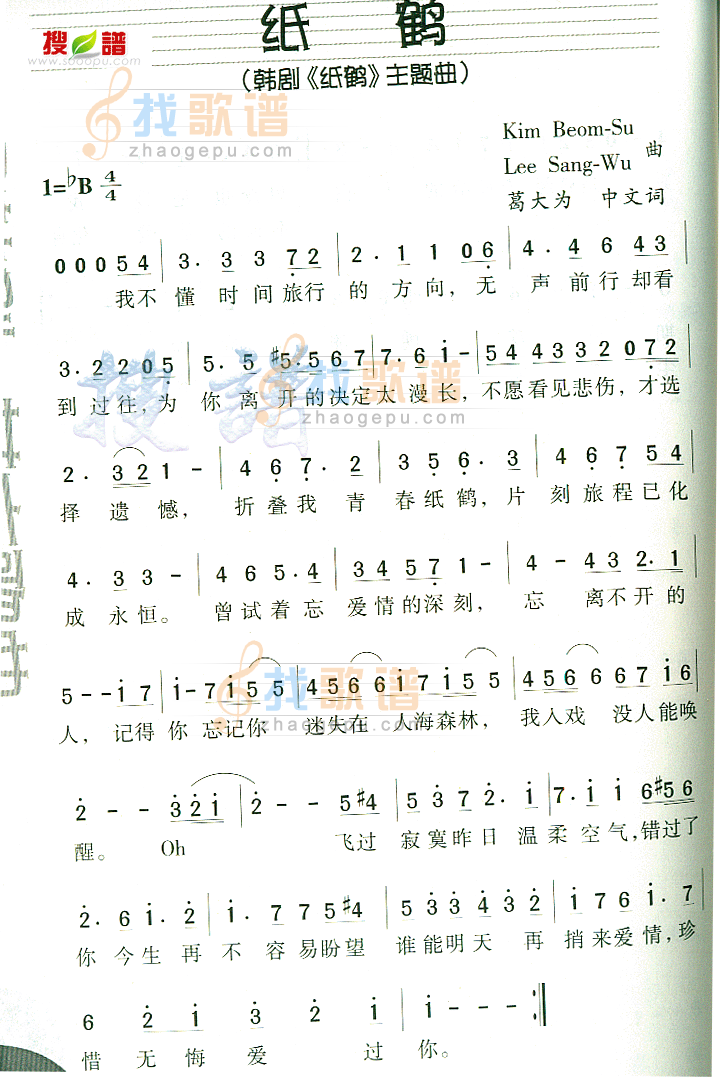 搜譜
www.sooopu.com
纸 鹤
（韩剧《纸鹤》主题曲）
找歌谱
zhaogepu.com
Kim Beom-Su
Lee Sang-Wu 曲
葛大为 中文词
1=♭B 4/4
0 0 0 5 4 | 3 . 3 3 7 2 | 2 . 1 1 0 6 | 4 . 4 6 4 3 |
我不 懂 时 间 旅行 的 方 向, 无 声 前 行 却看
3 . 2 2 0 5 | 5 . 5 #5 . 5 6 7 | 7 . 6 i - | 5 4 4 3 3 2 0 7 2 |
到 过 往, 为 你 离 开 的决定 太 漫 长, 不愿看见悲伤, 才选
搜譜
找歌谱
zhaogepu.com
2 . 3 2 1 - | 4 6 7 . 2 | 3 5 6 . 3 | 4 6 7 5 4 |
择 遗 憾, 折 叠 我 青 春 纸 鹤, 片 刻 旅 程 已 化
4 . 3 3 - | 4 6 5 . 4 | 3 4 5 7 1 - | 4 - 4 3 2 . 1 |
成 永 恒。 曾 试 着 忘 爱 情 的 深 刻, 忘 离 不 开 的
5 - - i 7 | i - 7 i 5 5 | 4 5 6 6 i 7 i 5 5 | 4 5 6 6 6 7 i 6 |
人, 记得 你 忘记你 迷失在 人海森林, 我入戏 没人能唤
找歌谱
zhaogepu.com
2 - - 3 2 i | 2 - - 5 #4 | 5 3 7 2 . i | 7 . i i 6 #5 6 |
醒。 Oh 飞过 寂寞昨日 温 柔 空 气, 错过了
2 . 6 i . 2 | i . 7 7 5 #4 | 5 3 3 4 3 2 | i 2 3 i . 7 |
你 今 生 再 不 容 易 盼望 谁 能明 天 再 捎 来 爱 情, 珍
6 2 i 3 2 i | i - - - :‖
惜 无 悔 爱 过 你。